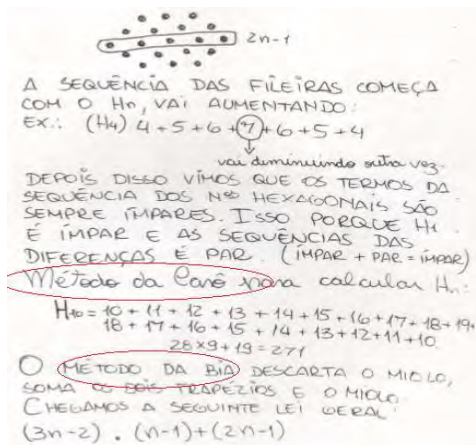 2n-1
A SEQUÊNCIA DAS FILEIRAS COMEÇA
COM O Hn, VAI AUMENTANDO:
EX.: (H4) 4+5+6+7+6+5+4
vai diminuindo outra vez.
DEPOIS DISSO VIMOS QUE OS TERMOS DA
SEQUÊNCIA DOS Nos HEXAGONAIS SÃO
SEMPRE ÍMPARES. ISSO PORQUE H1
É ÍMPAR E AS SEQUÊNCIAS DAS
DIFERENÇAS É PAR. (ÍMPAR + PAR = ÍMPAR)
Método da Carô para calcular Hn:
H10 = 10+11+12+13+14+15+16+17+18+19+
18+17+16+15+14+13+12+11+10
28×9+19=271
O MÉTODO DA BIA DESCARTA O MIOLO,
SOMA OS DOIS TRAPÉZIOS E O MIOLO.
CHEGAMOS A SEGUINTE LEI GERAL:
(3n-2) . (n-1)+(2n-1)